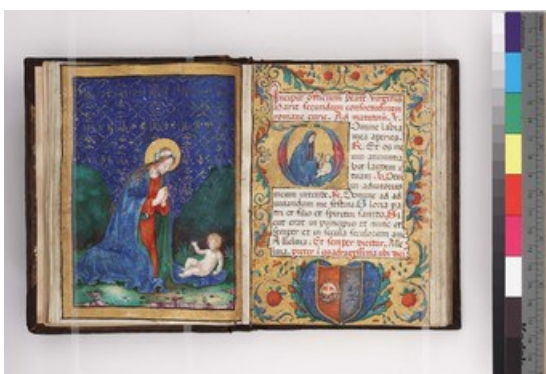 Incipit officium beate virginis
Marie secundum consuetudinem
romane curie. Ad matutinū. V.
Domine labia
mea aperies.
R. Et os me
um anuntia
bit laudem
tuam. Deus
in adiutoriū
meum intende. R. Domine ad ad
iuuandum me festina. Gloria pa
tri et filio et spiritui sancto. Si
cut erat in principio et nunc et
semper et in secula seculorum amē
Alleluia. Et semper dicitur. Alle
luia. preter quadragesima ubi dici